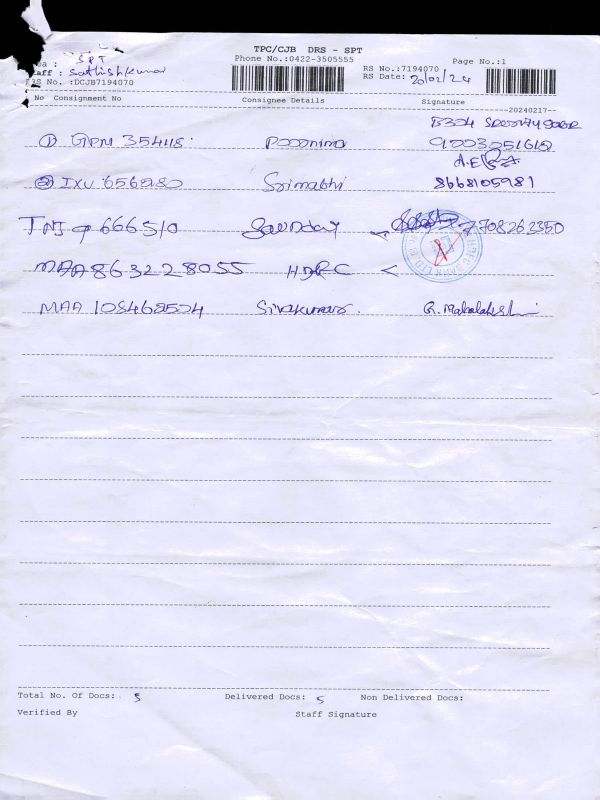 TPC/CJB DRS - SPT
Phone No.:0422-3505555
SPT
Staff : Sathishkumar
RS No. :DCJB7194070
RS No.:7194070
RS Date: 20/02/24
Page No.:1
No Consignment No Consignee Details Signature
20240217
B304
① 354118 Poornima 9003051612
② IXU 656280 Srimathi 8668105981
TNJ 666510 7708262350
MAA 863228055 HDFC
MAA 108468504 Sivakumar. G. Mahalakshmi
Total No. Of Docs: 5 Delivered Docs: 5 Non Delivered Docs:
Verified By Staff Signature